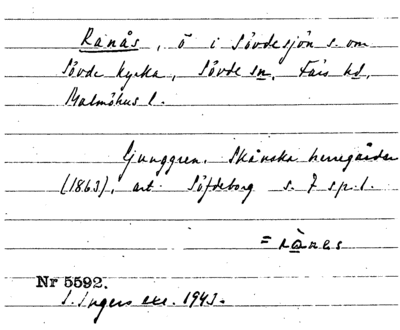 Ranås, ö i Sövdesjön s. om
Sövde kyrka, Sövde sn, Färs hd,
Malmöhus l.
Ljunggren. Skånska herregårdar
(1863), art. Söfdeborg s. 7 sp. 1.
= rànes
Nr 5592.
I. Ingers exc. 1943.